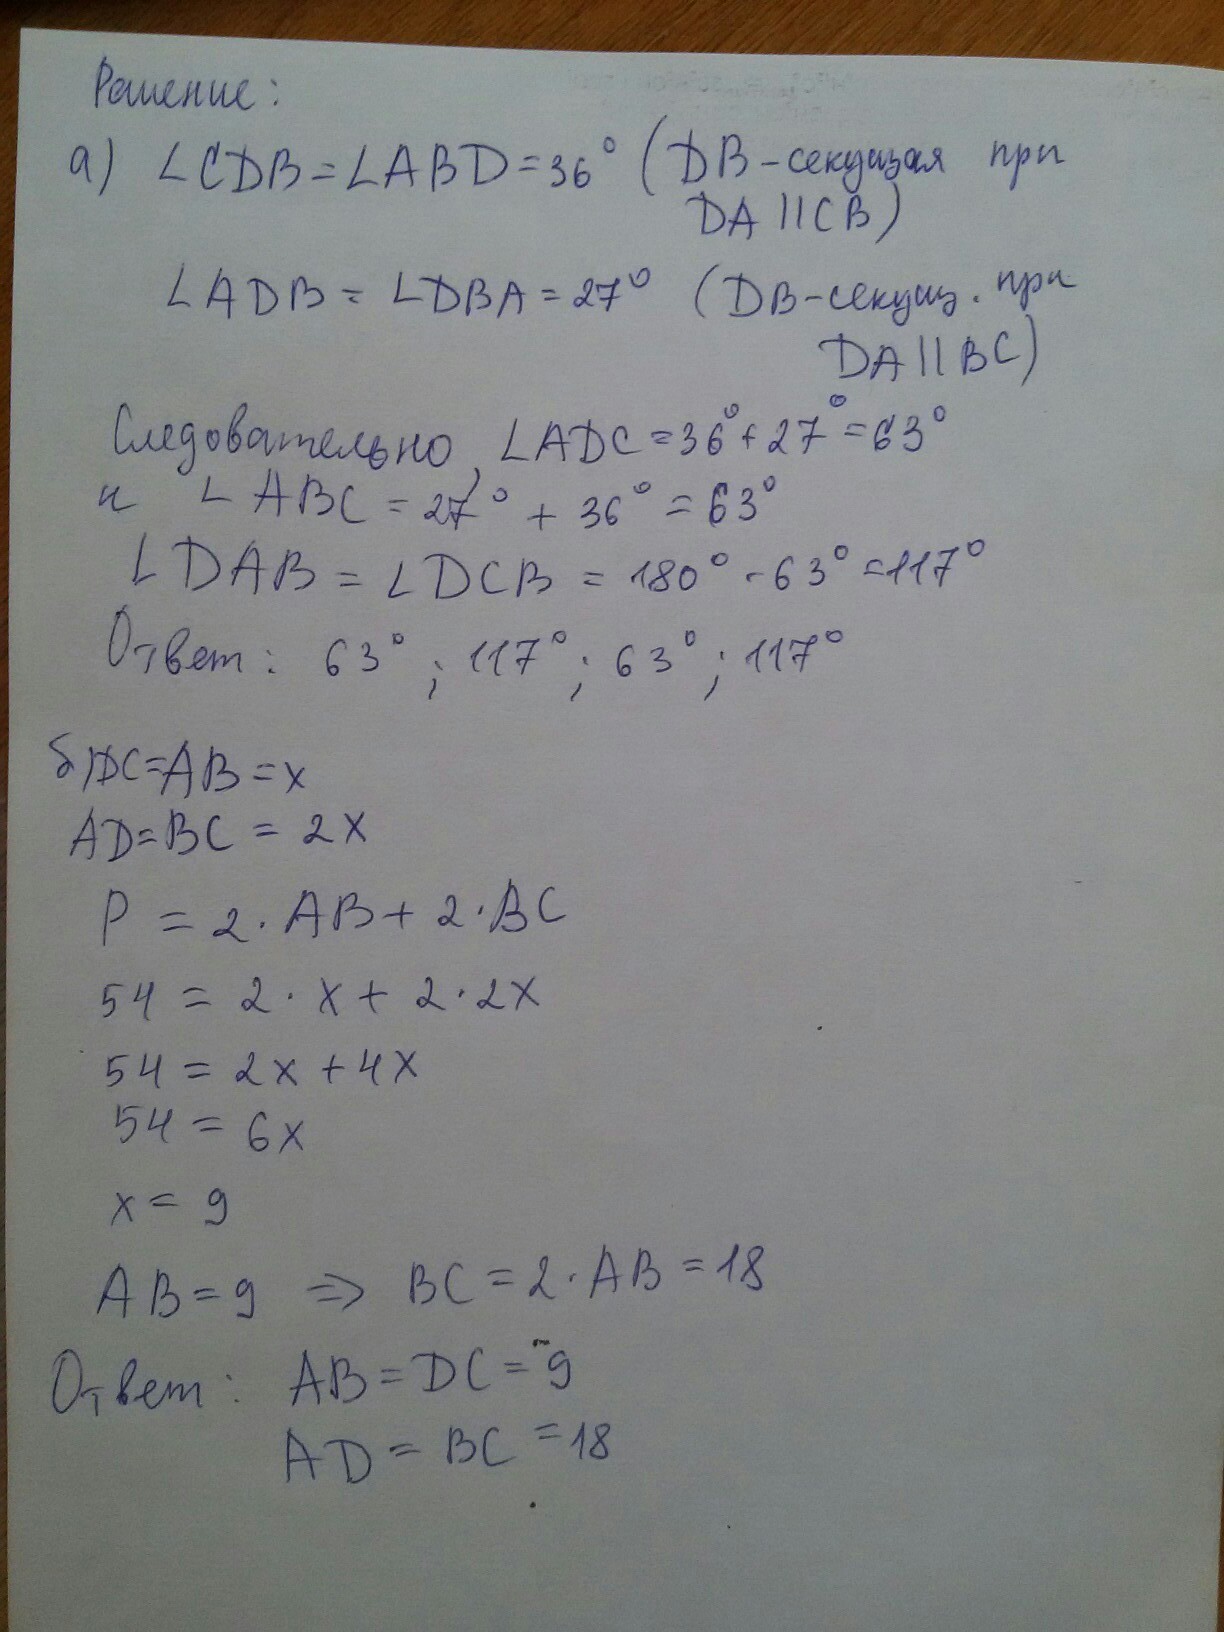 Решение:
а) ∠CDB = ∠ABD = 36° (DB - секущая при
DA || CB)
∠ADB = ∠DBA = 27° (DB - секущ. при
DA || BC)
Следовательно, ∠ADC = 36° + 27° = 63°
и ∠ABC = 27° + 36° = 63°
∠DAB = ∠DCB = 180° - 63° = 117°
Ответ: 63°; 117°; 63°; 117°
б) DC = AB = x
AD = BC = 2x
P = 2 · AB + 2 · BC
54 = 2 · x + 2 · 2x
54 = 2x + 4x
54 = 6x
x = 9
AB = 9 ⇒ BC = 2 · AB = 18
Ответ: AB = DC = 9
AD = BC = 18